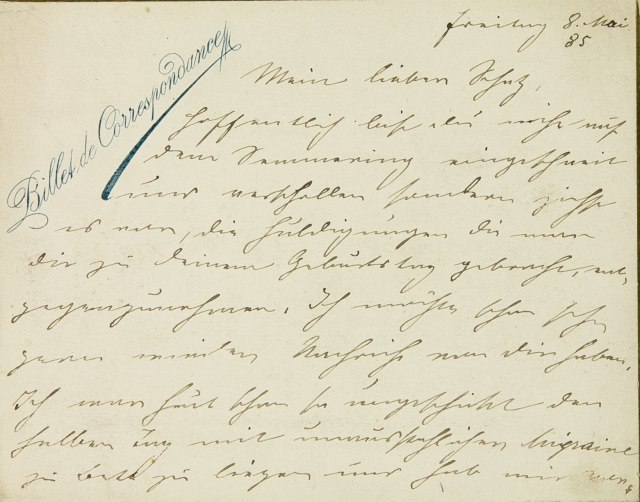 Freitag 8. Mai
85
Billet de Correspondance
Mein lieber Schatz,
hoffentlich bist du nicht auf
dem Semmering eingeschneit
und verschollen sondern ziehst
es vor, die Huldigungen die man
dir zu deinem Geburtstag gebracht, ent-
gegenzunehmen. Ich möchte schon sehr
gerne wieder Nachricht von dir haben.
Ich war heut schon so ungeschickt den
halben Tag mit unausstehlicher Migraine
zu Bett zu liegen und hab mir